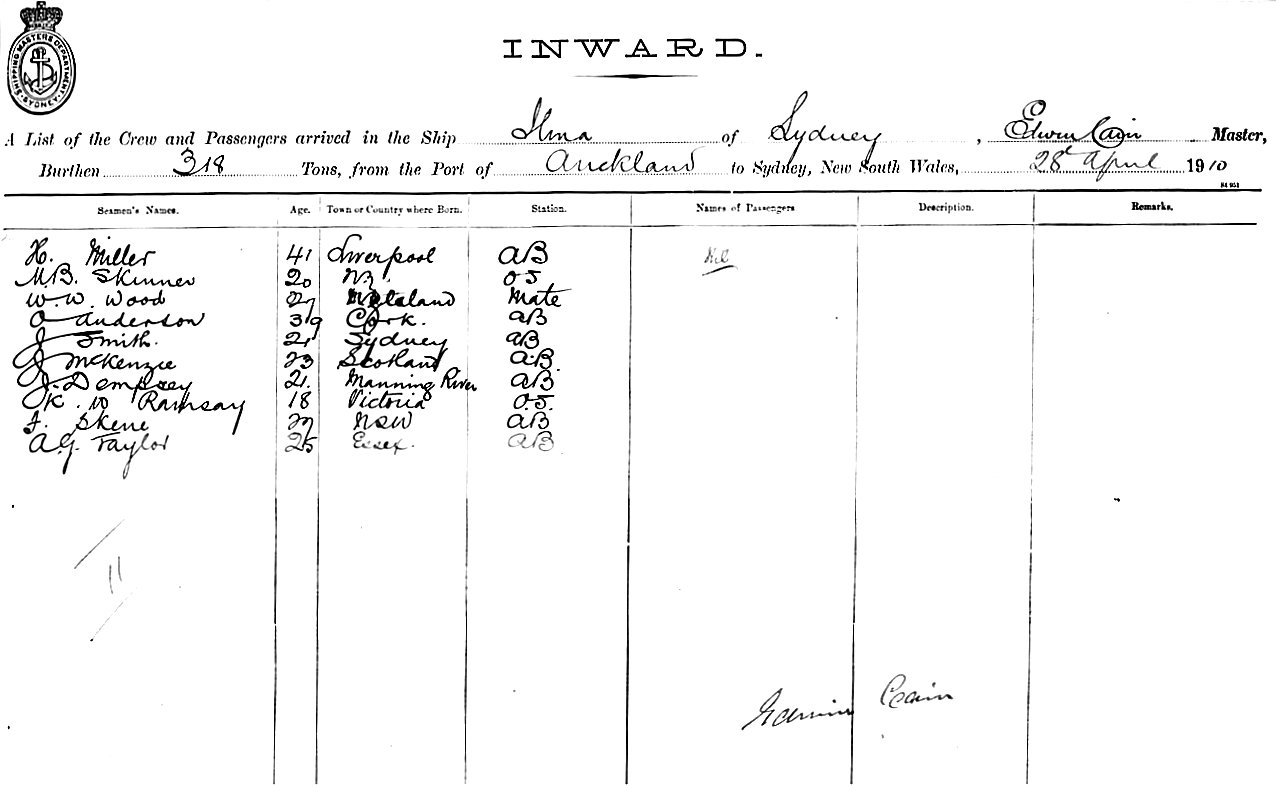 SHIPPING MASTERS DEPARTMENT. SYDNEY
INWARD.
A List of the Crew and Passengers arrived in the Ship Ilma of Sydney, Edwin Cain Master,
Burthen 318 Tons, from the Port of Auckland to Sydney, New South Wales, 28th April 1910
Seamen's Names. Age. Town or Country where Born. Station. Names of Passengers Description. Remarks.
H. Miller 41 Liverpool AB Nil
M.B. Skinner 20 NZ. OS
W.W. Wood 27 Mate
O Anderson 39 Cork. AB
J Smith. 21 Sydney AB
J McKenzie 23 Scotland A.B.
J. Dempsey 21. Manning River AB
K. W Ramsay 18 Victoria O.S.
F. Skene 27 NSW AB
A.G. Taylor 25 Essex. AB
11
Edwin Cain